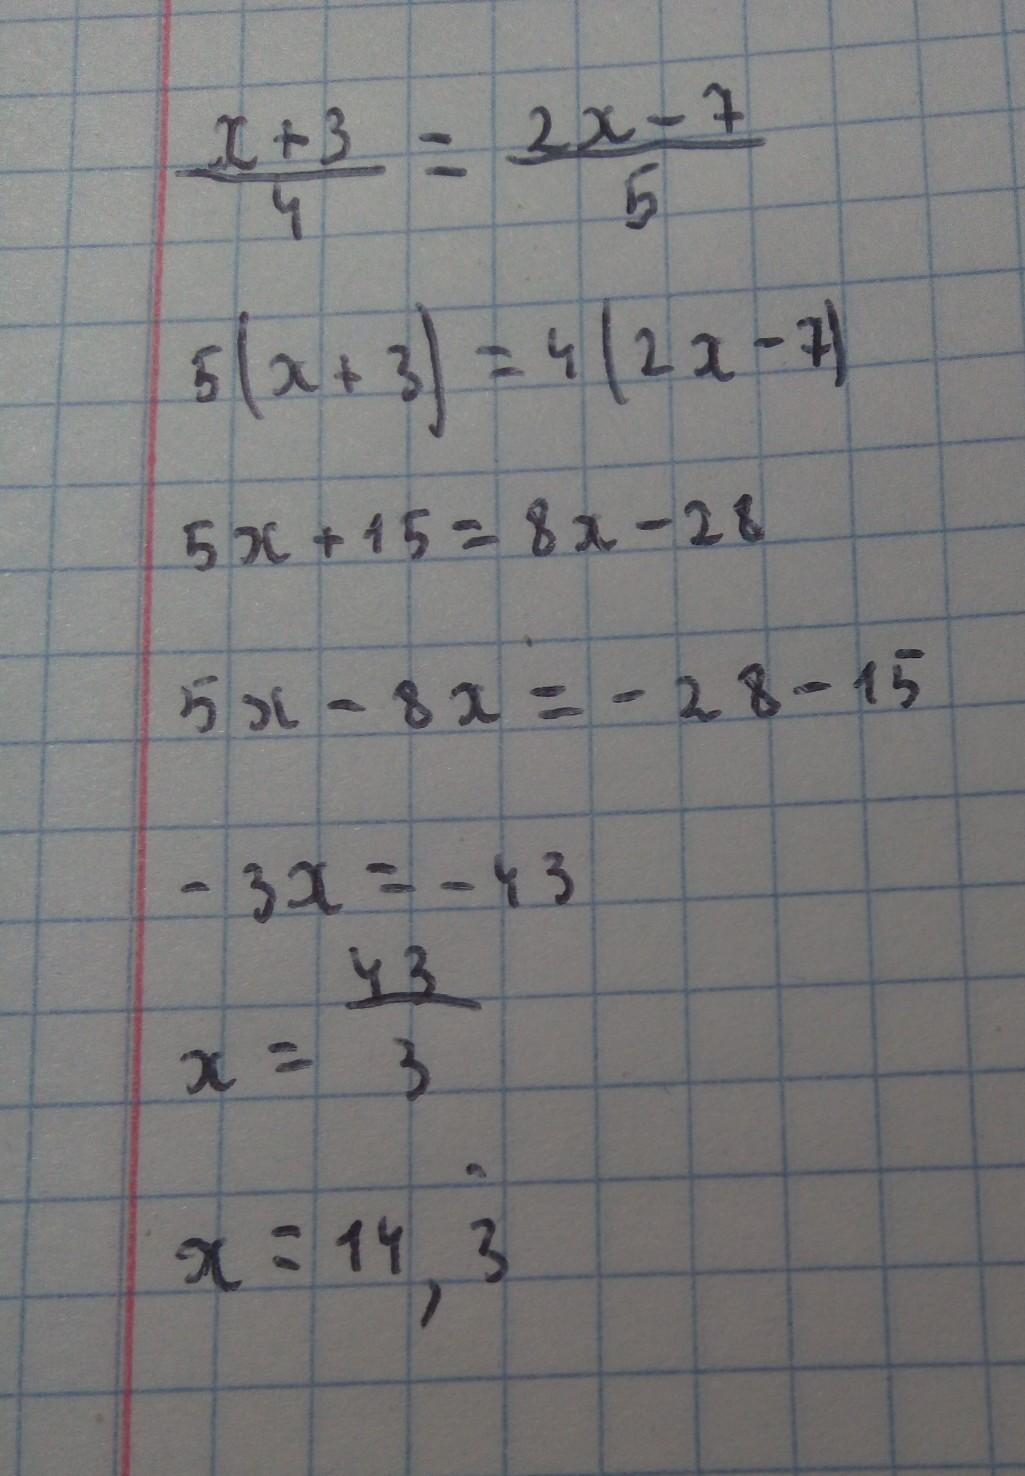 x+3/4 = 2x-7/5
5(x+3)=4(2x-7)
5x+15=8x-28
5x-8x=-28-15
-3x=-43
x = 43/3
x=14,3̇